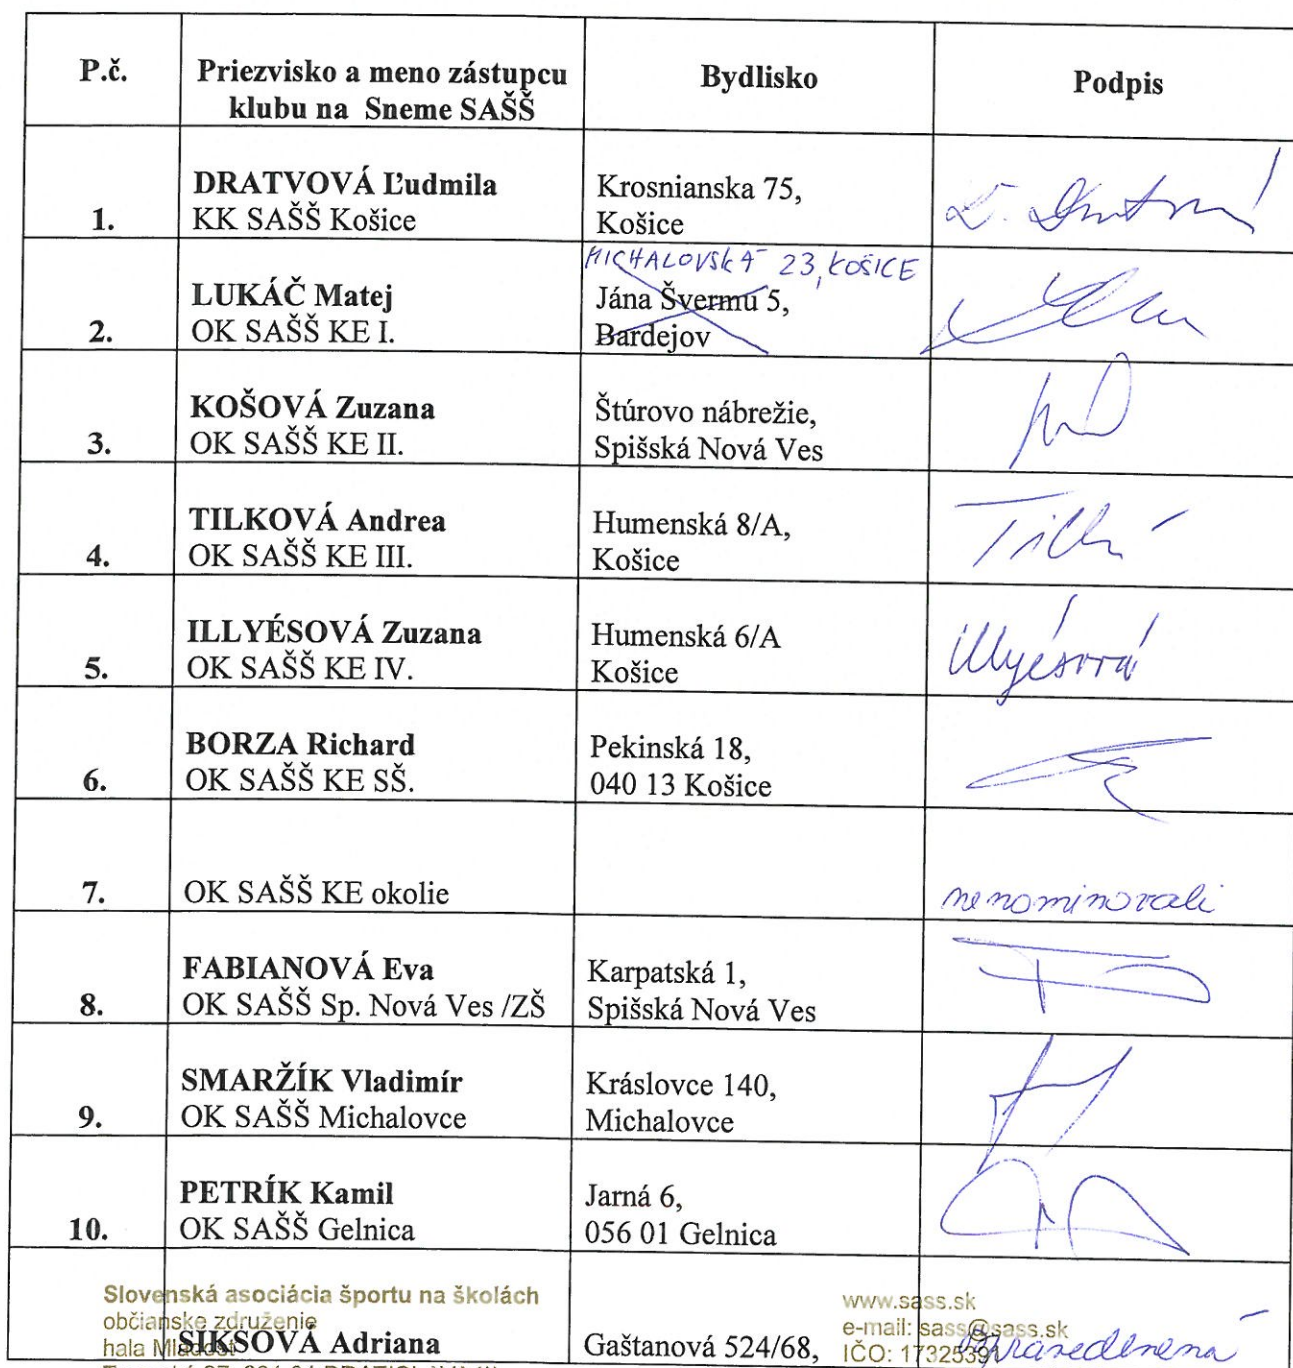 P.č.
Priezvisko a meno zástupcu
klubu na Sneme SAŠŠ
Bydlisko
Podpis
1.
DRATVOVÁ Ľudmila
KK SAŠŠ Košice
Krosnianska 75,
Košice
2.
LUKÁČ Matej
OK SAŠŠ KE I.
MICHALOVSKÁ 23, KOŠICE
Jána Švermu 5,
Bardejov
3.
KOŠOVÁ Zuzana
OK SAŠŠ KE II.
Štúrovo nábrežie,
Spišská Nová Ves
4.
TILKOVÁ Andrea
OK SAŠŠ KE III.
Humenská 8/A,
Košice
5.
ILLYÉSOVÁ Zuzana
OK SAŠŠ KE IV.
Humenská 6/A
Košice
Illyésová
6.
BORZA Richard
OK SAŠŠ KE SŠ.
Pekinská 18,
040 13 Košice
7.
OK SAŠŠ KE okolie
nenominovali
8.
FABIANOVÁ Eva
OK SAŠŠ Sp. Nová Ves /ZŠ
Karpatská 1,
Spišská Nová Ves
9.
SMARŽÍK Vladimír
OK SAŠŠ Michalovce
Kráslovce 140,
Michalovce
10.
PETRÍK Kamil
OK SAŠŠ Gelnica
Jarná 6,
056 01 Gelnica
Slovenská asociácia športu na školách
občianske združenie
hala Mladosť
SIKSOVÁ Adriana
Gaštanová 524/68,
www.sass.sk
e-mail: sass@sass.sk
IČO: 17325391